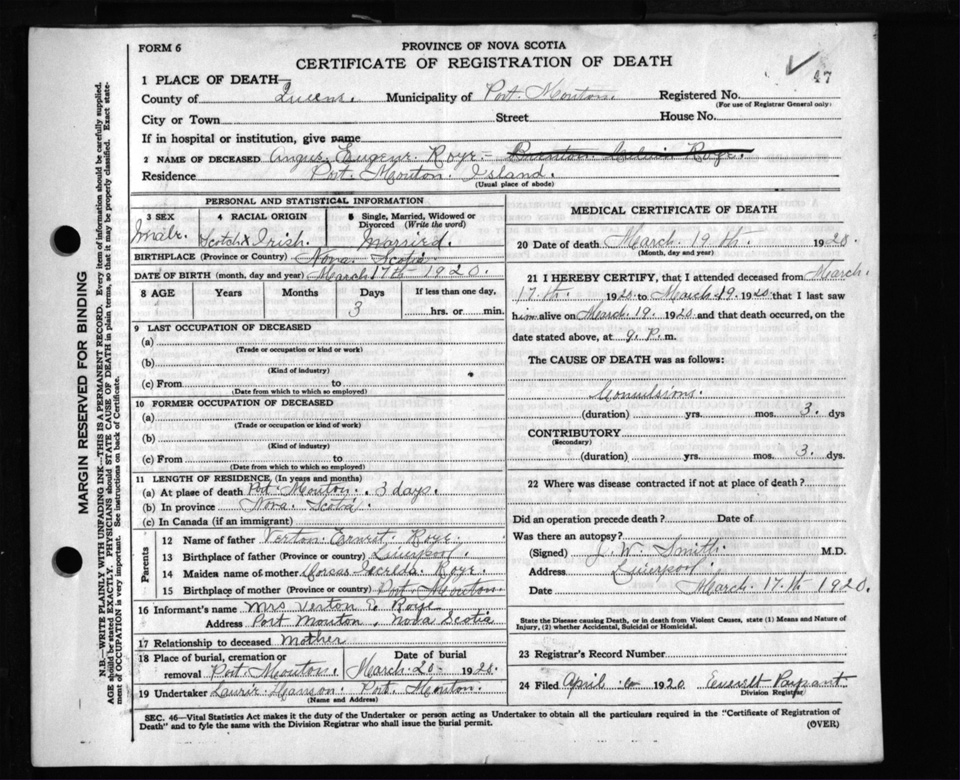 FORM 6
PROVINCE OF NOVA SCOTIA
CERTIFICATE OF REGISTRATION OF DEATH
47
1 PLACE OF DEATH—
County of Queens. Municipality of Port Mouton. Registered No.
(For use of Registrar General only)
City or Town Street House No.
If in hospital or institution, give name
2 NAME OF DECEASED Angus Eugene Roye.
Residence Port Mouton Island.
(Usual place of abode)
PERSONAL AND STATISTICAL INFORMATION
3 SEX 4 RACIAL ORIGIN 5 Single, Married, Widowed or Divorced (Write the word)
Male. Scotch & Irish. Married.
BIRTHPLACE (Province or Country) Nova Scotia
DATE OF BIRTH (month, day and year) March 17th 1920.
8 AGE Years Months Days If less than one day,
3 hrs. or min.
9 LAST OCCUPATION OF DECEASED
(a)
(Trade or occupation or kind or work)
(b)
(Kind of industry)
(c) From to
(Date from which to which so employed)
10 FORMER OCCUPATION OF DECEASED
(a)
(Trade or occupation or kind of work)
(b)
(Kind of industry)
(c) From to
(Date from which to which so employed)
11 LENGTH OF RESIDENCE, (In years and months)
(a) At place of death Port Mouton. 3 days.
(b) In province Nova Scotia
(c) In Canada (if an immigrant)
Parents
12 Name of father Verton Ernest Roye.
13 Birthplace of father (Province or country) Liverpool.
14 Maiden name of mother Roye.
15 Birthplace of mother (Province or country) Port Mouton.
16 Informant's name Mrs Verton E. Roye
Address Port Mouton, Nova Scotia
17 Relationship to deceased Mother
18 Place of burial, cremation or removal Port Mouton. Date of burial March 20- 1920.
19 Undertaker Port Mouton.
(Name and Address)
MEDICAL CERTIFICATE OF DEATH
20 Date of death March 19th. 1920.
(Month, day and year)
21 I HEREBY CERTIFY, that I attended deceased from March.
17th. 1920 to March 19. 1920 that I last saw
him alive on March 19. 1920 and that death occurred, on the
date stated above, at 9. P. m.
The CAUSE OF DEATH was as follows:
Convulsions.
(duration) yrs. mos. 3. dys
CONTRIBUTORY
(Secondary)
(duration) yrs. mos. 3. dys.
22 Where was disease contracted if not at place of death?
Did an operation precede death? Date of
Was there an autopsy?
(Signed) J. W. Smith. M.D.
Address Liverpool.
Date March. 17.th 1920.
State the Disease causing Death, or in death from Violent Causes, state (1) Means and Nature of
Injury, (2) whether Accidental, Suicidal or Homicidal.
23 Registrar's Record Number
24 Filed April 1920 Everett
Division Registrar
SEC. 46—Vital Statistics Act makes it the duty of the Undertaker or person acting as Undertaker to obtain all the particulars required in the "Certificate of Registration of
Death" and to fyle the same with the Division Registrar who shall issue the burial permit.
(OVER)
MARGIN RESERVED FOR BINDING
N.B.—WRITE PLAINLY WITH UNFADING INK—THIS IS A PERMANENT RECORD. Every item of information should be carefully supplied.
AGE should be stated EXACTLY. PHYSICIANS should STATE CAUSE OF DEATH in plain terms, so that it may be properly classified. Exact state-
ment of OCCUPATION is very important. See instructions on back of Certificate.